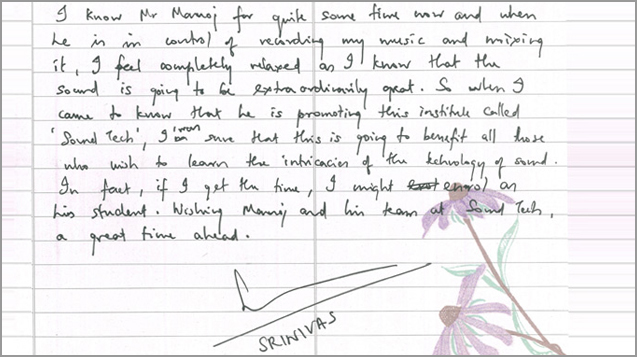 I know Mr Manoj for quite some time now and when
he is in control of recording my music and mixing
it, I feel completely relaxed as I know that the
sound is going to be extraordinarily great. So when I
came to know that he is promoting this institute called
'Sound Tech', I am sure that this is going to benefit all those
who wish to learn the intricacies of the tehnology of sound.
In fact, if I get the time, I might enrol as
his student. Wishing Manoj and his team at Sound Tech,
a great time ahead.
SRINIVAS